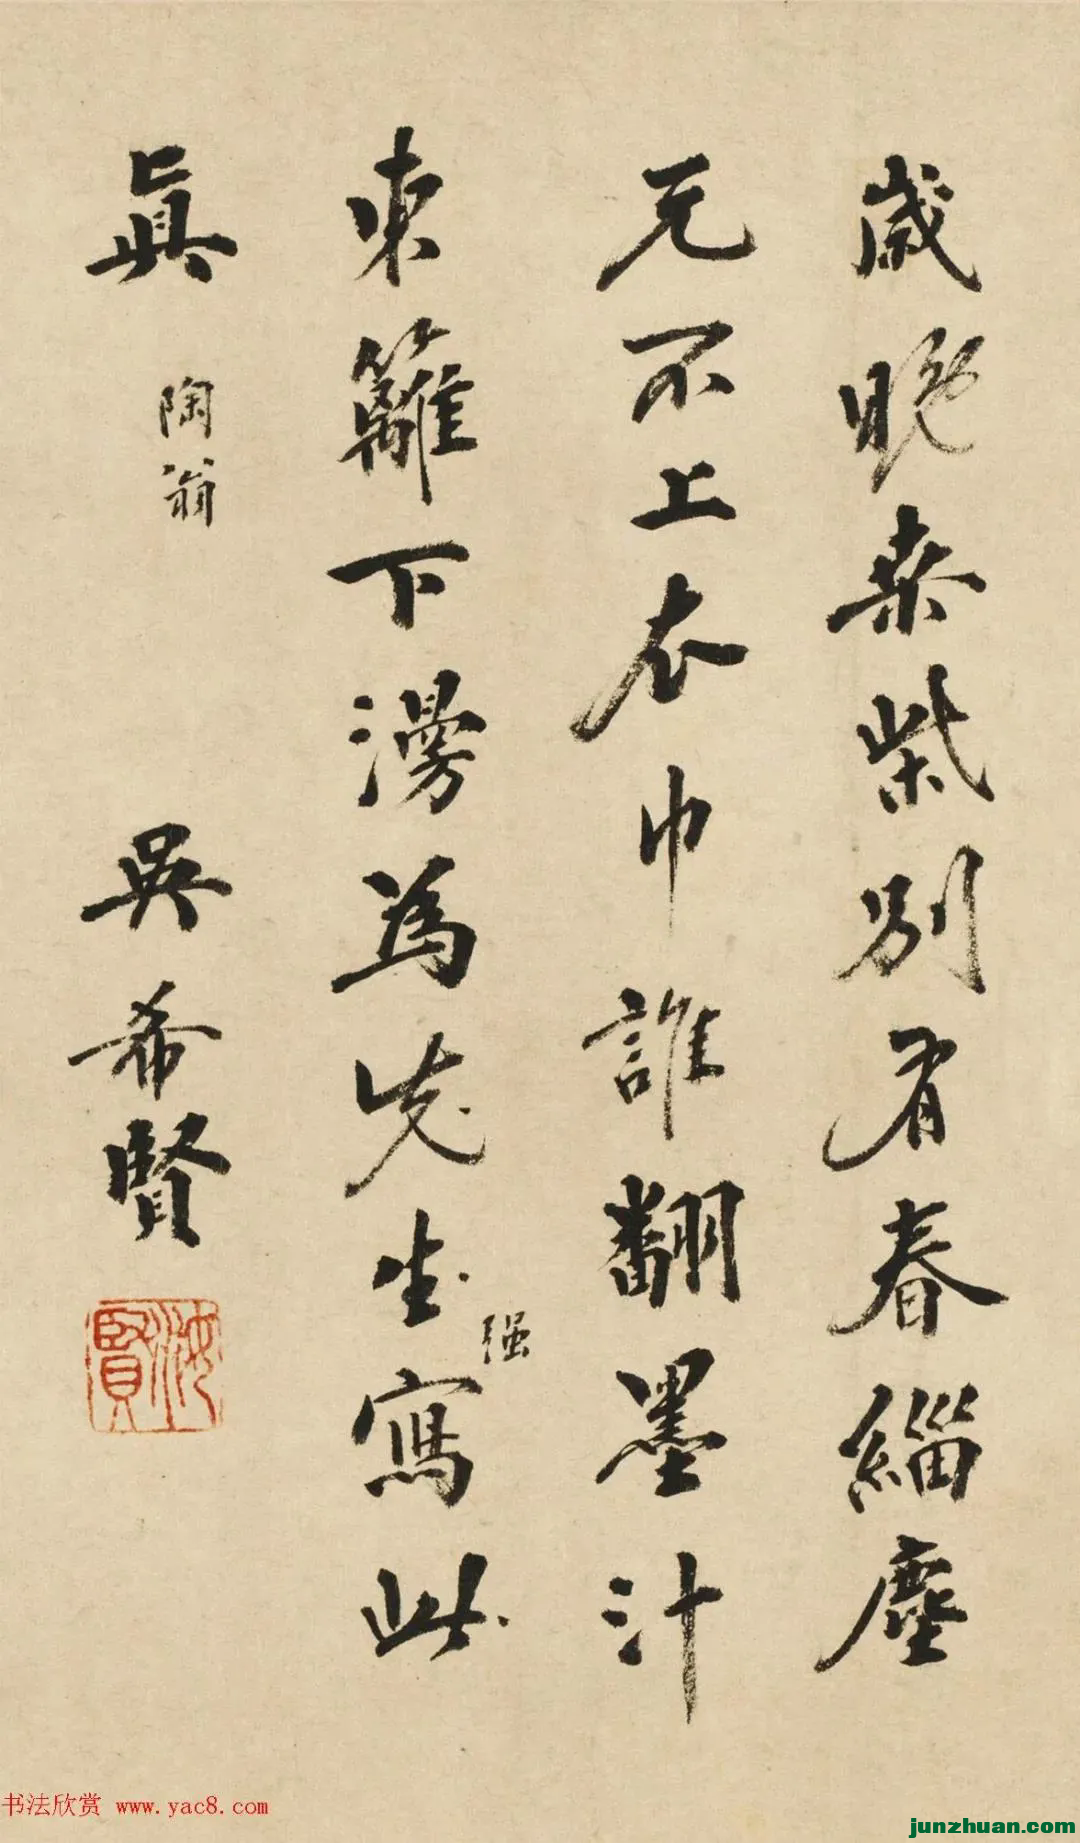 歲晚桑柴別有春緇塵
元不上衣巾誰翻墨汁
東籬下漫爲先生寫此
强
眞 陶翁
吳希賢
汝賢
书法欣赏 www.yac8.com
junzhuan.com